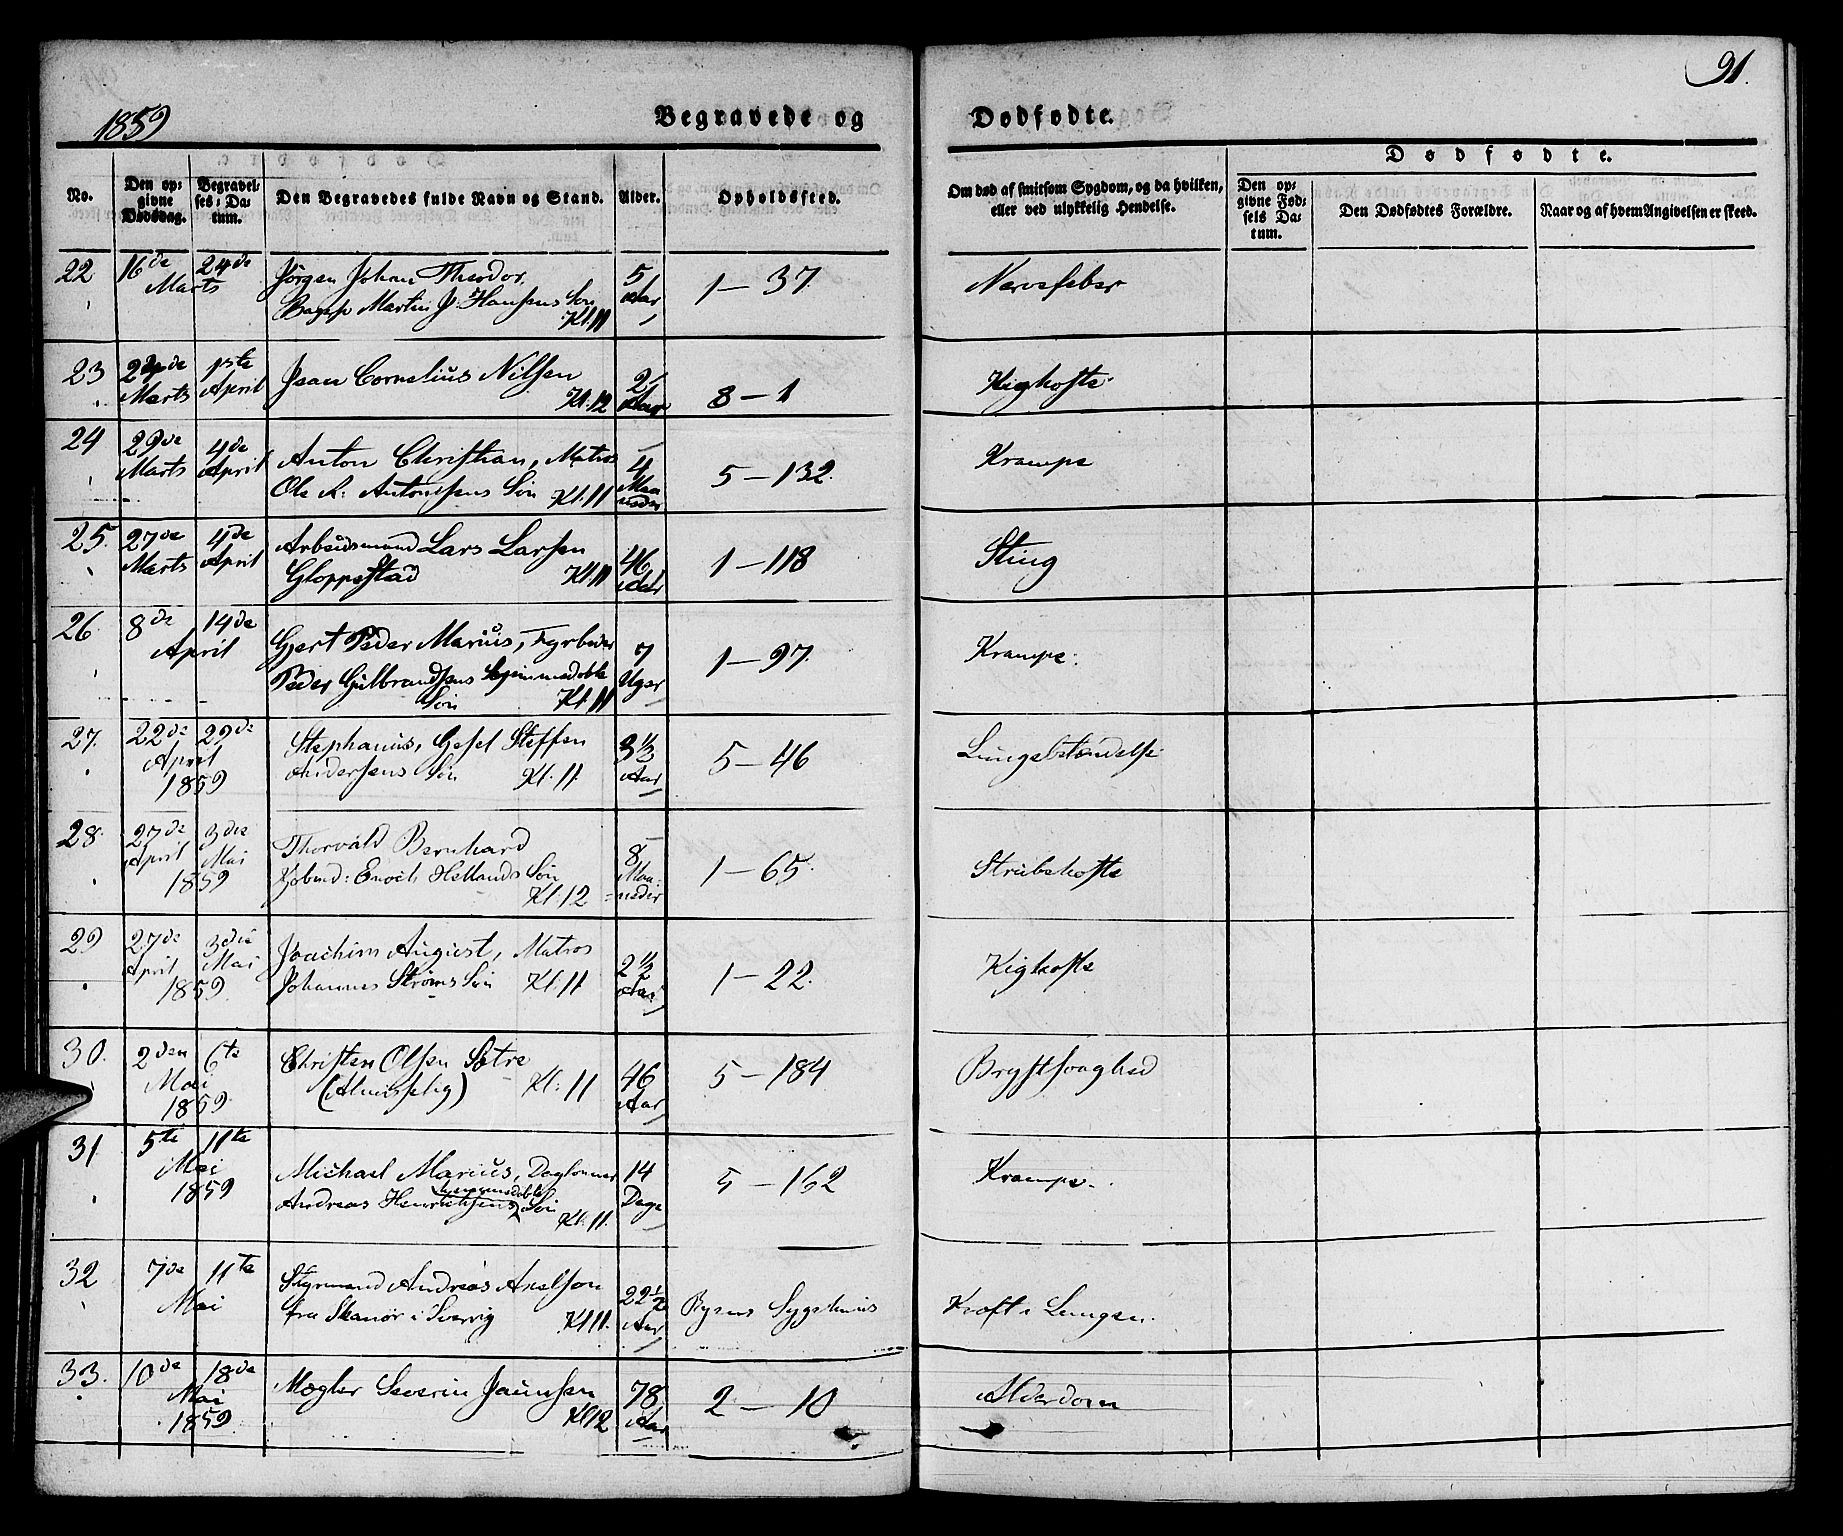 91.
1859
Begravede og Dødfødte.
Dødfødte.
No.
Den op-
givne
Dødsdag.
Begravel-
ses-Da-
tum.
Den Begravedes fulde Navn og Stand.
Alder.
Opholdssted.
Om død af smitsom Sygdom, og da hvilken,
eller ved ulykkelig Hendelse.
Den op-
givne Fød-
sels Da-
tum.
Den Dødfødtes Forældre.
Naar og af hvem Angivelsen er skeed.
22 16de 24de Jørgen Johan Theodor, 5 1-37 Nervefeber
Marts Martin J. Hansens Søn Aar
Kl. 11
23 24de 1ste Jean Cornelius Nilsen 2 8-1 Kighoste
Marts April Kl. 12 Aar
24 29de 4de Anton Christian, Matros 4 5-132. Krampe
Marts April Ole A. Antonsens Søn Kl. 11 Maa
neder
25. 27de 4de Arbeidsmand Lars Larsen 46 1-118 Sting
Marts April Gloppestad Kl. 11 Aar
26. 8de 14de Gjert Peder Marius, Fyrbøder 7 1-97. Krampe.
April Peder Gulbrandsens hjemmedøbte Uger
Søn Kl. 11
27. 22de 29de Stephanus, Gesel Steffen 3 1/2 5-46 Lungebetændelse
April Andersens Søn Kl. 11. Aar
1859
28. 27de 3die Thorvald Bernhard 8 1-65. Strubehoste
April Mai Kjøbmd: Enoch Hetlands Søn Maa-
1859 Kl. 12 neder
29 27de 3die Joachim August, Matros 2 1/2 1-22. Kighoste
April Mai Johannes Strøms Søn Kl. 11 Aar
1859.
30. 2den 6te Christen Olsen Sætre 46 5-184 Brystsvaghed
Mai (Almisselig) Kl. 11 Aar
1859.
31. 5te 11te Michael Marius, Daglønner 14 5-162 Krampe.
Mai hjemmedøbte
1859 Andreas Henrichsens Søn Dage
Kl. 11.
32 7de 11te Styrmand Andreas Axelson 22 1/2 Byens Sygehuus Kræft i Lungen.
Mai fra Skanør i Sverrig Kl 11. Aar
33. 10de 18de Mægler Severin Jaunsen 78 2-10 Alderdom
Mai Kl 12 Aar
1859.